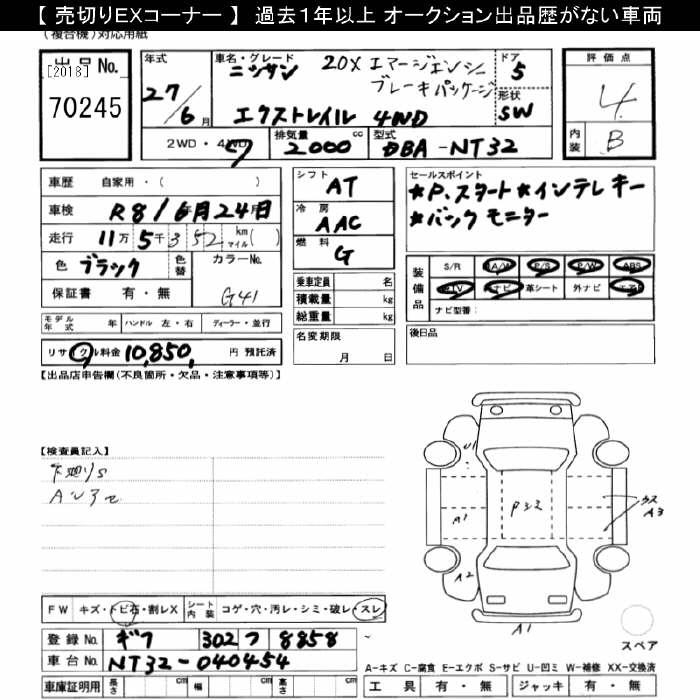 【 売切りEXコーナー 】 過去１年以上 オークション出品歴がない車両
(複合機)対応用紙
出品No.
[2018]
70245
年式
27/6月
車名・グレード
ニッサン 20X エマージェンシー
ブレーキパッケージ
エクストレイル 4WD
ドア
5
形状
SW
評価点
4
内装
B
2WD・4WD
排気量
2000 cc
型式
DBA-NT32
車歴 自家用・( )
車検 R8/6月24日
走行 11万5千352 km マイル( )
色 ブラック
色替
カラーNo.
G41
保証書 有・無
シフト
AT
冷房
AAC
燃料
G
セールスポイント
★P.スタート★インテレキー
★バックモニター
乗車定員 名
積載量 kg
総重量 kg
装備品
S/R A/W P/S P/W ABS
TV ナビ 革シート 外ナビ エアB
ナビ型番:
モデル年式 年 ハンドル 左・右 ディーラー・並行
名変期限
月 日
後日品
リサイクル料金 10,850, 円 預託済
【出品店申告欄(不良箇所・欠品・注意事項等)】
【検査員記入】
下廻りS
U1
A1
A2
Pシミ
ウス
A3
A1
スペア
FW キズ・トビ石・割レX
シート内装 コゲ・穴・汚レ・シミ・破レ・スレ
登録No. ギフ 302 フ 8858
車台No. NT32-040454
車庫証明用 長さ cm 幅 cm 高さ cm
A-キズ C-腐食 E-エクボ S-サビ U-凹ミ W-補修 XX-交換済
工具 有・無 ジャッキ 有・無